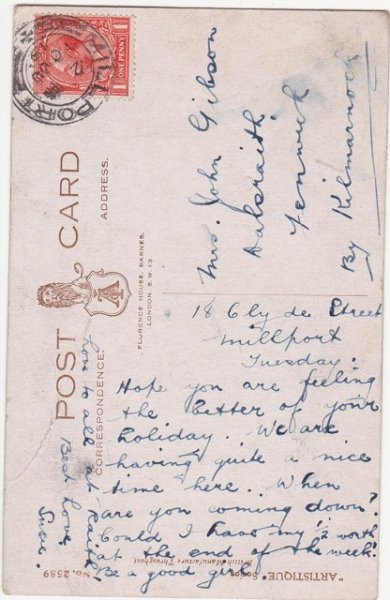 MILLPORT
ONE PENNY
POST CARD
CORRESPONDENCE.
ADDRESS.
FLORENCE HOUSE, BARNES,
LONDON S.W.13
Mrs. John Gibson
Fenwick
By Kilmarnock
18 Clyde Street
Millport
Tuesday.
Hope you are feeling
the better of your
holiday. We are
having quite a nice
time here.. When
are you coming down?
Could I have my worth
at the end of the week.
Be a good girl
Love to all at
Best Love
"ARTISTIQUE" Series
British Manufacture Throughout
No. 2589